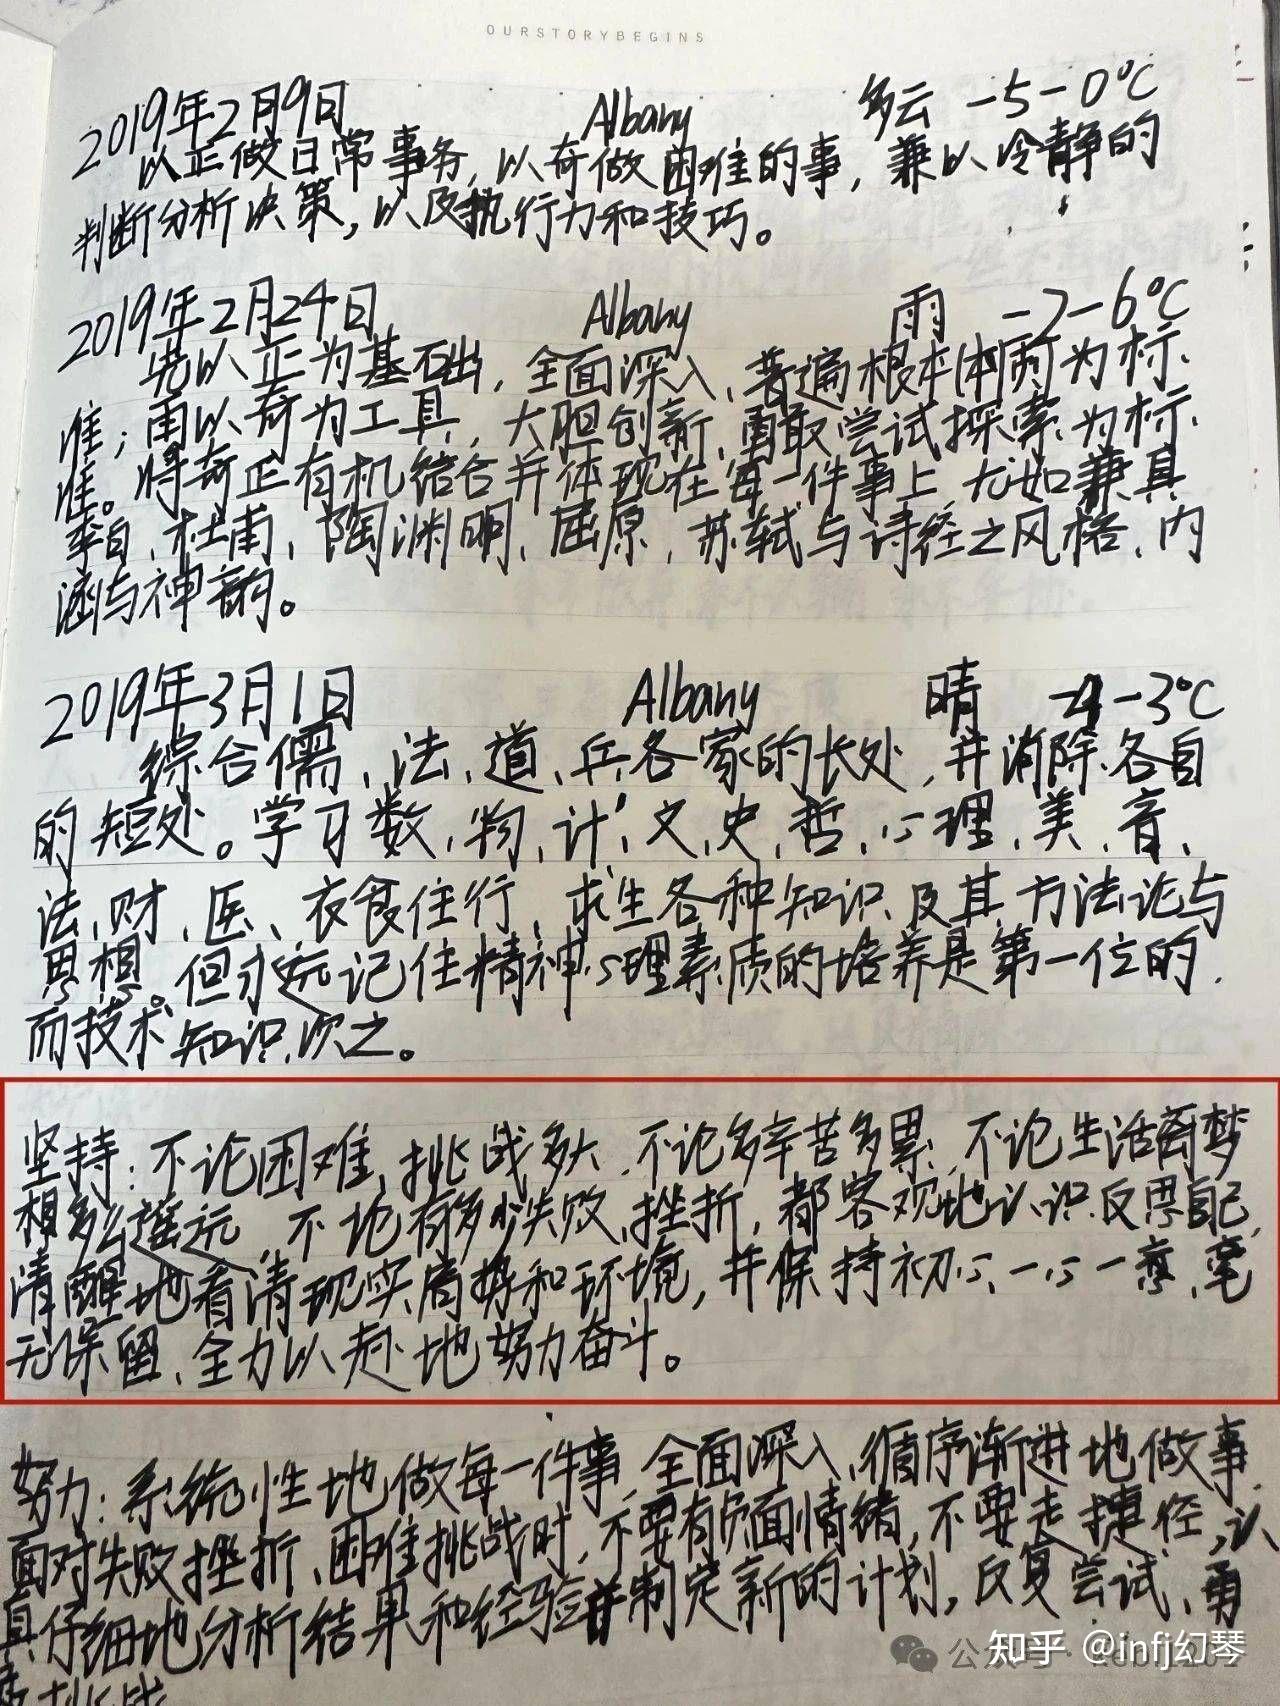 OURSTORYBEGINS
2019年2月9日 Albany 多云 -5-0°C
以正做日常事务，以奇做困难的事，兼以冷静的
判断分析决策，以及执行力和技巧。
2019年2月24日 Albany 雨 -2-6°C
先以正为基础，全面深入、普遍根本(本质)为标
准；再以奇为工具，大胆创新、勇敢尝试探索为标
准。将奇正有机结合并体现在每一件事上，尤如兼具
李白、杜甫、陶渊明、屈原、苏轼与诗经之风格、内
涵与神韵。
2019年3月1日 Albany 晴 -4-3°C
综合儒、法、道、兵各家的长处，并消除各自
的短处。学习数、物、计、文、史、哲、心理、美、音、
法、财、医、衣食住行、求生各种知识及其方法论与
思想。但永远记住精神心理素质的培养是第一位的，
而技术知识次之。
坚持：不论困难、挑战多大，不论多辛苦多累，不论生活离梦
想多么遥远，不论有多少失败、挫折，都客观地认识反思自己，
清醒地看清现实局势和环境，并保持初心、一心一意、毫
无保留、全力以赴地努力奋斗。
努力：系统性地做每一件事，全面深入、循序渐进地做事，
面对失败挫折、困难挑战时，不要有负面情绪，不要走捷径，认
真仔细地分析结果和经验并制定新的计划，反复尝试、勇
挑战
公众号
知乎 @infj幻琴